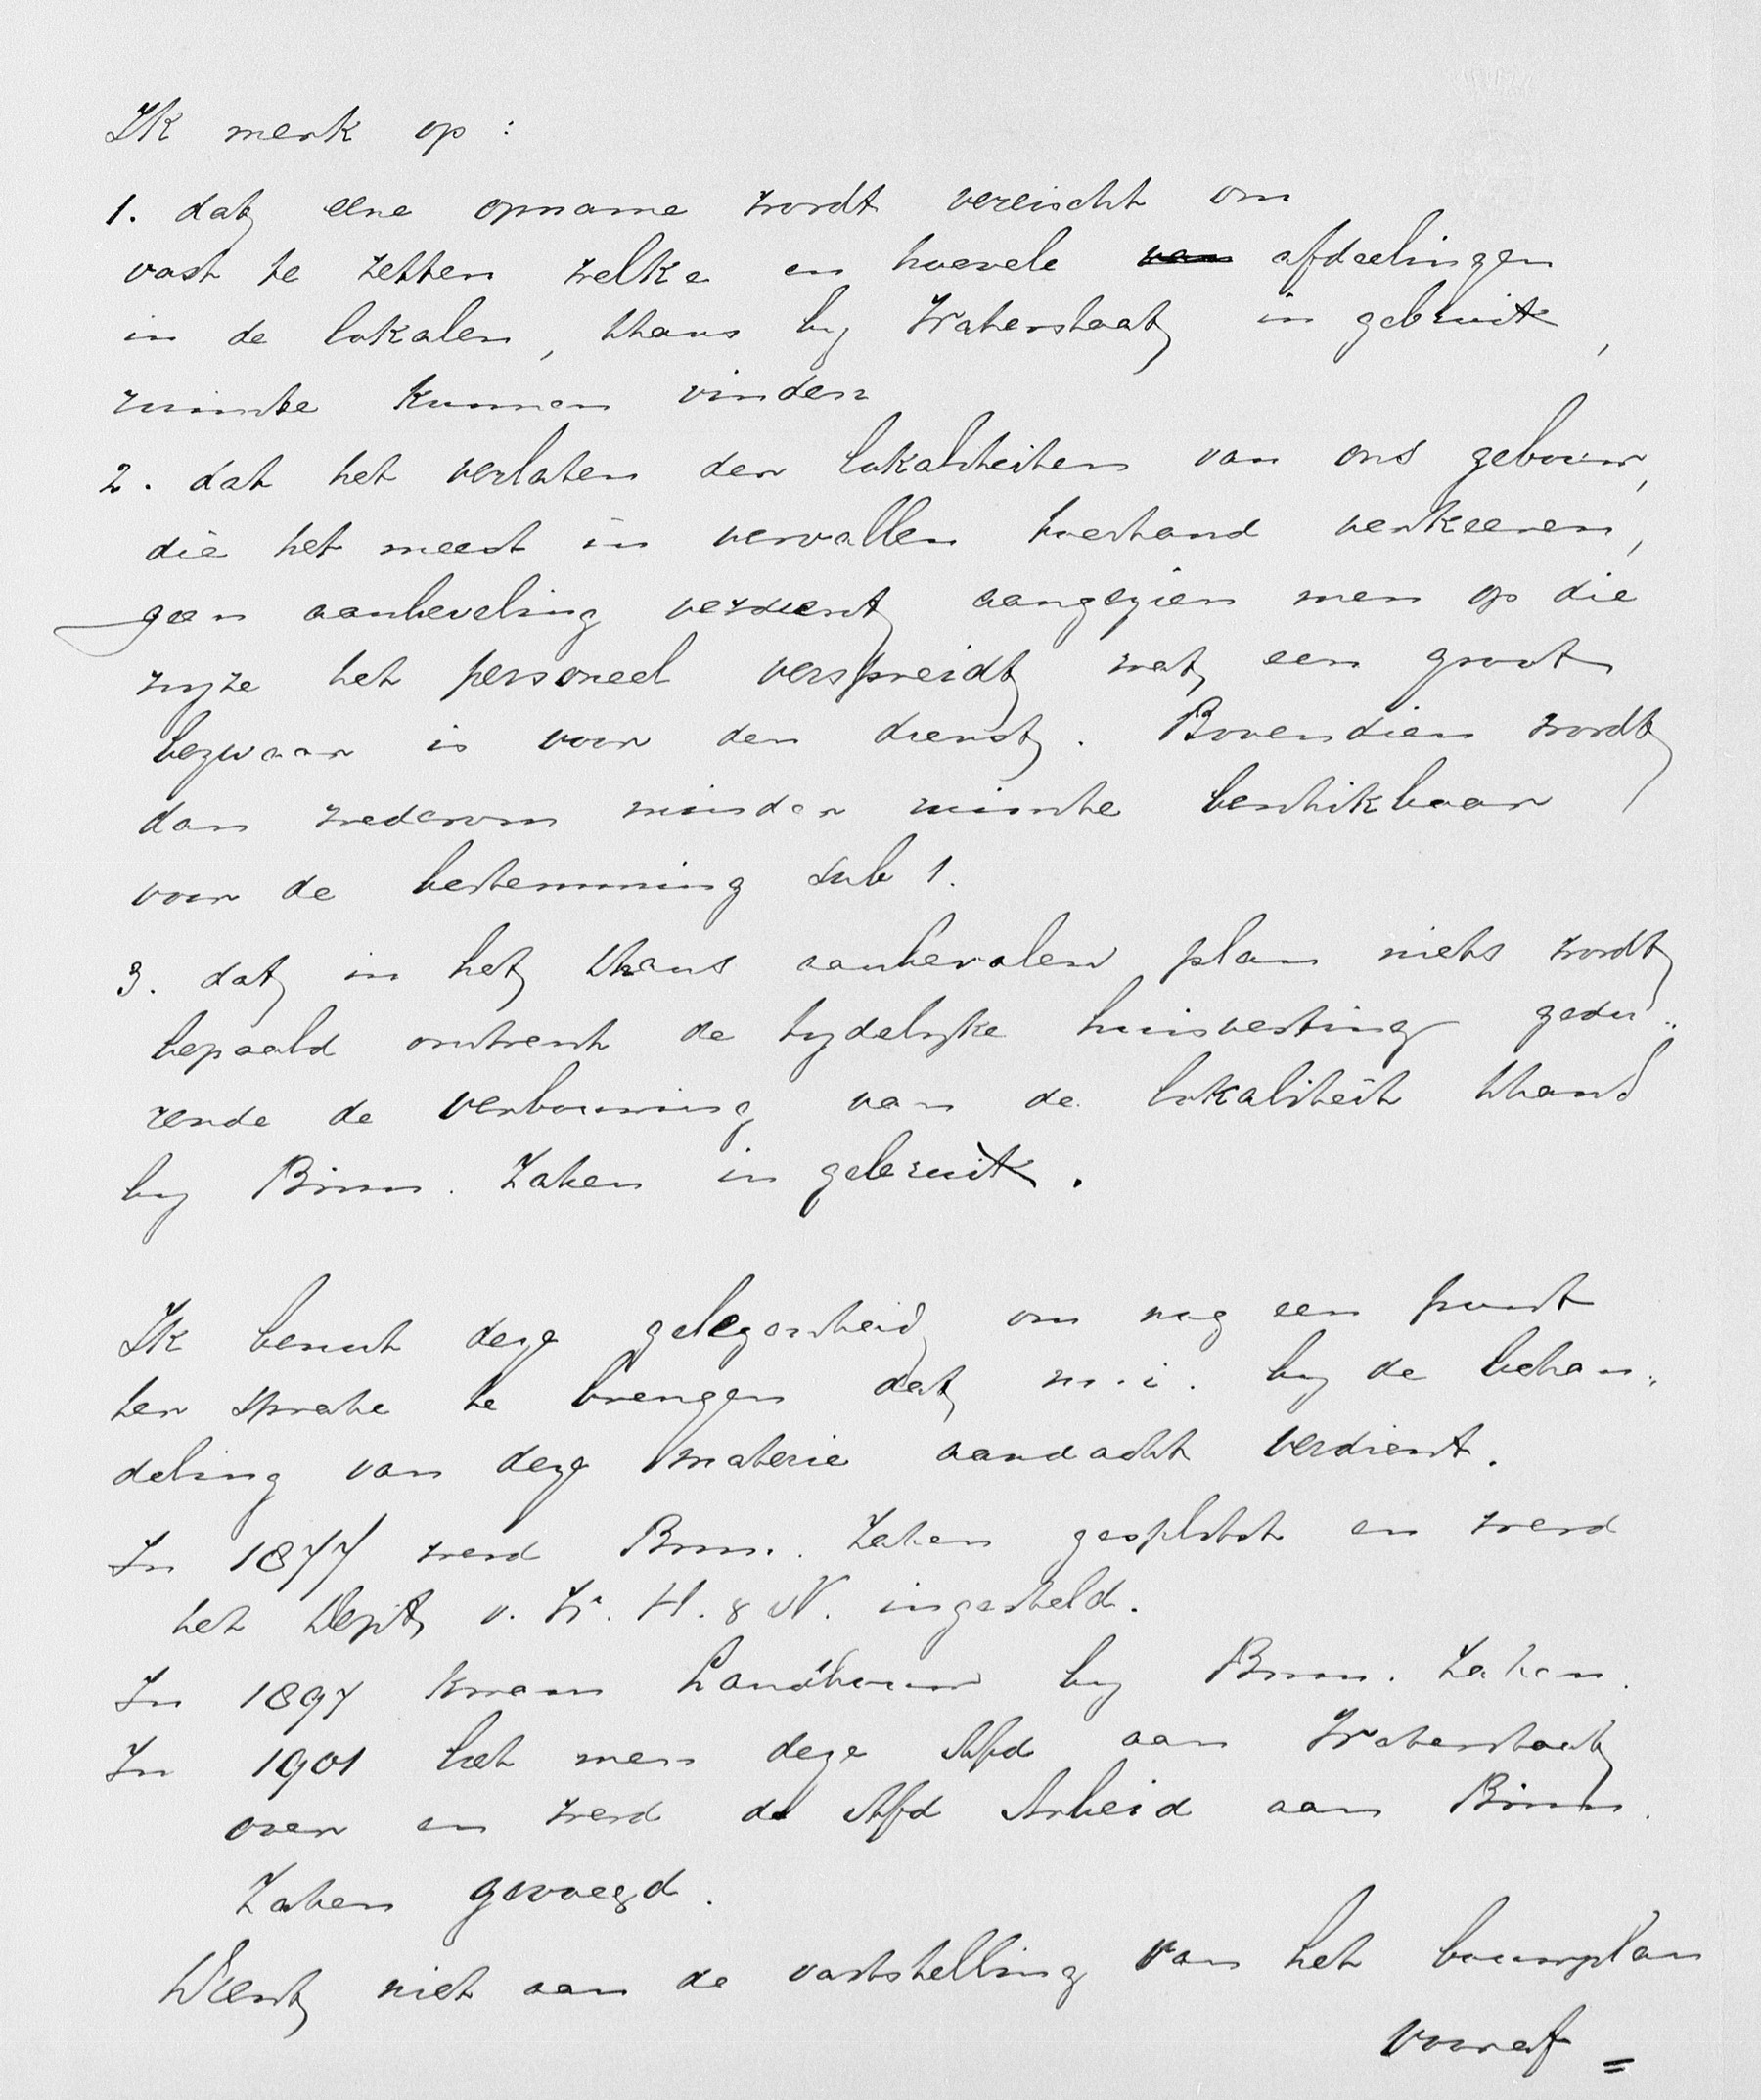 Ik merk op :
1. dat eene opname wordt vereischt om
vast te zetten welke en hoevele van afdeelingen
in de lokalen, thans by Waterstaat in gebruik,
ruimte kunnen vinden
2. dat het verlaten der lokaliteiten van ons gebouw,
die het meest in vervallen toestand verkeeren,
geen aanbeveling verdient aangezien men op die
wyze het personeel verspreidt wat een groot
bezwaar is voor den dienst. Bovendien wordt
dan wederom minder ruimte beschikbaar
voor de bestemming sub 1.
3. dat in het thans aanbevolen plan niets wordt
bepaald omtrent de tydelyke huisvesting gedu„
rende de verbouwing van de lokaliteit thans
by Binn. Zaken in gebruik.
Ik benut deze gelegenheid om nog een punt
ter sprake te brengen dat m.i. by de behan„
deling van deze materie aandacht verdient.
In 1877 werd Binn. Zaken gesplitst en werd
het Dept v. W. H. & N. ingesteld.
In 1897 kwam Landbouw by Binn. Zaken.
In 1901 liet men deze Afd aan Waterstaat
over en werd de Afd Arbeid aan Binn.
Zaken gevoegd.
Dient niet aan de vaststelling van het bouwplan
vooraf =